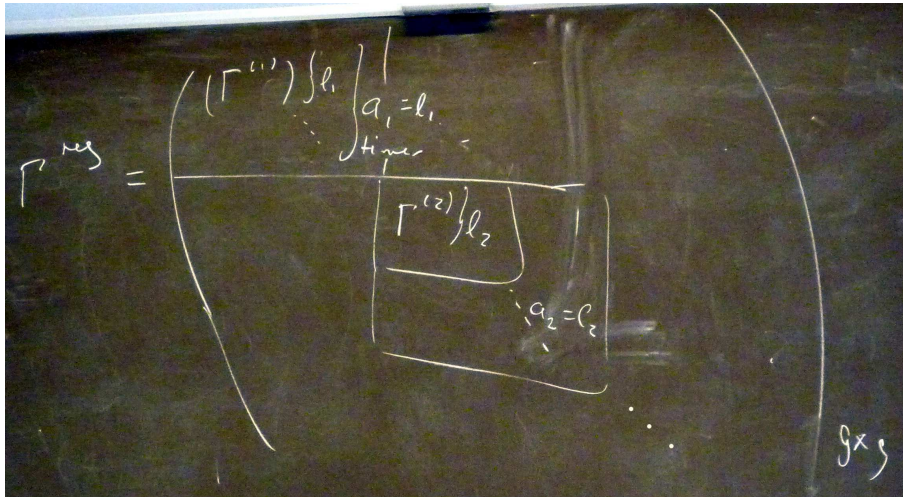 Γ^reg = ( (Γ^(1)) } l_1
a_1 = l_1
times
Γ^(2) } l_2
a_2 = l_2
g × g